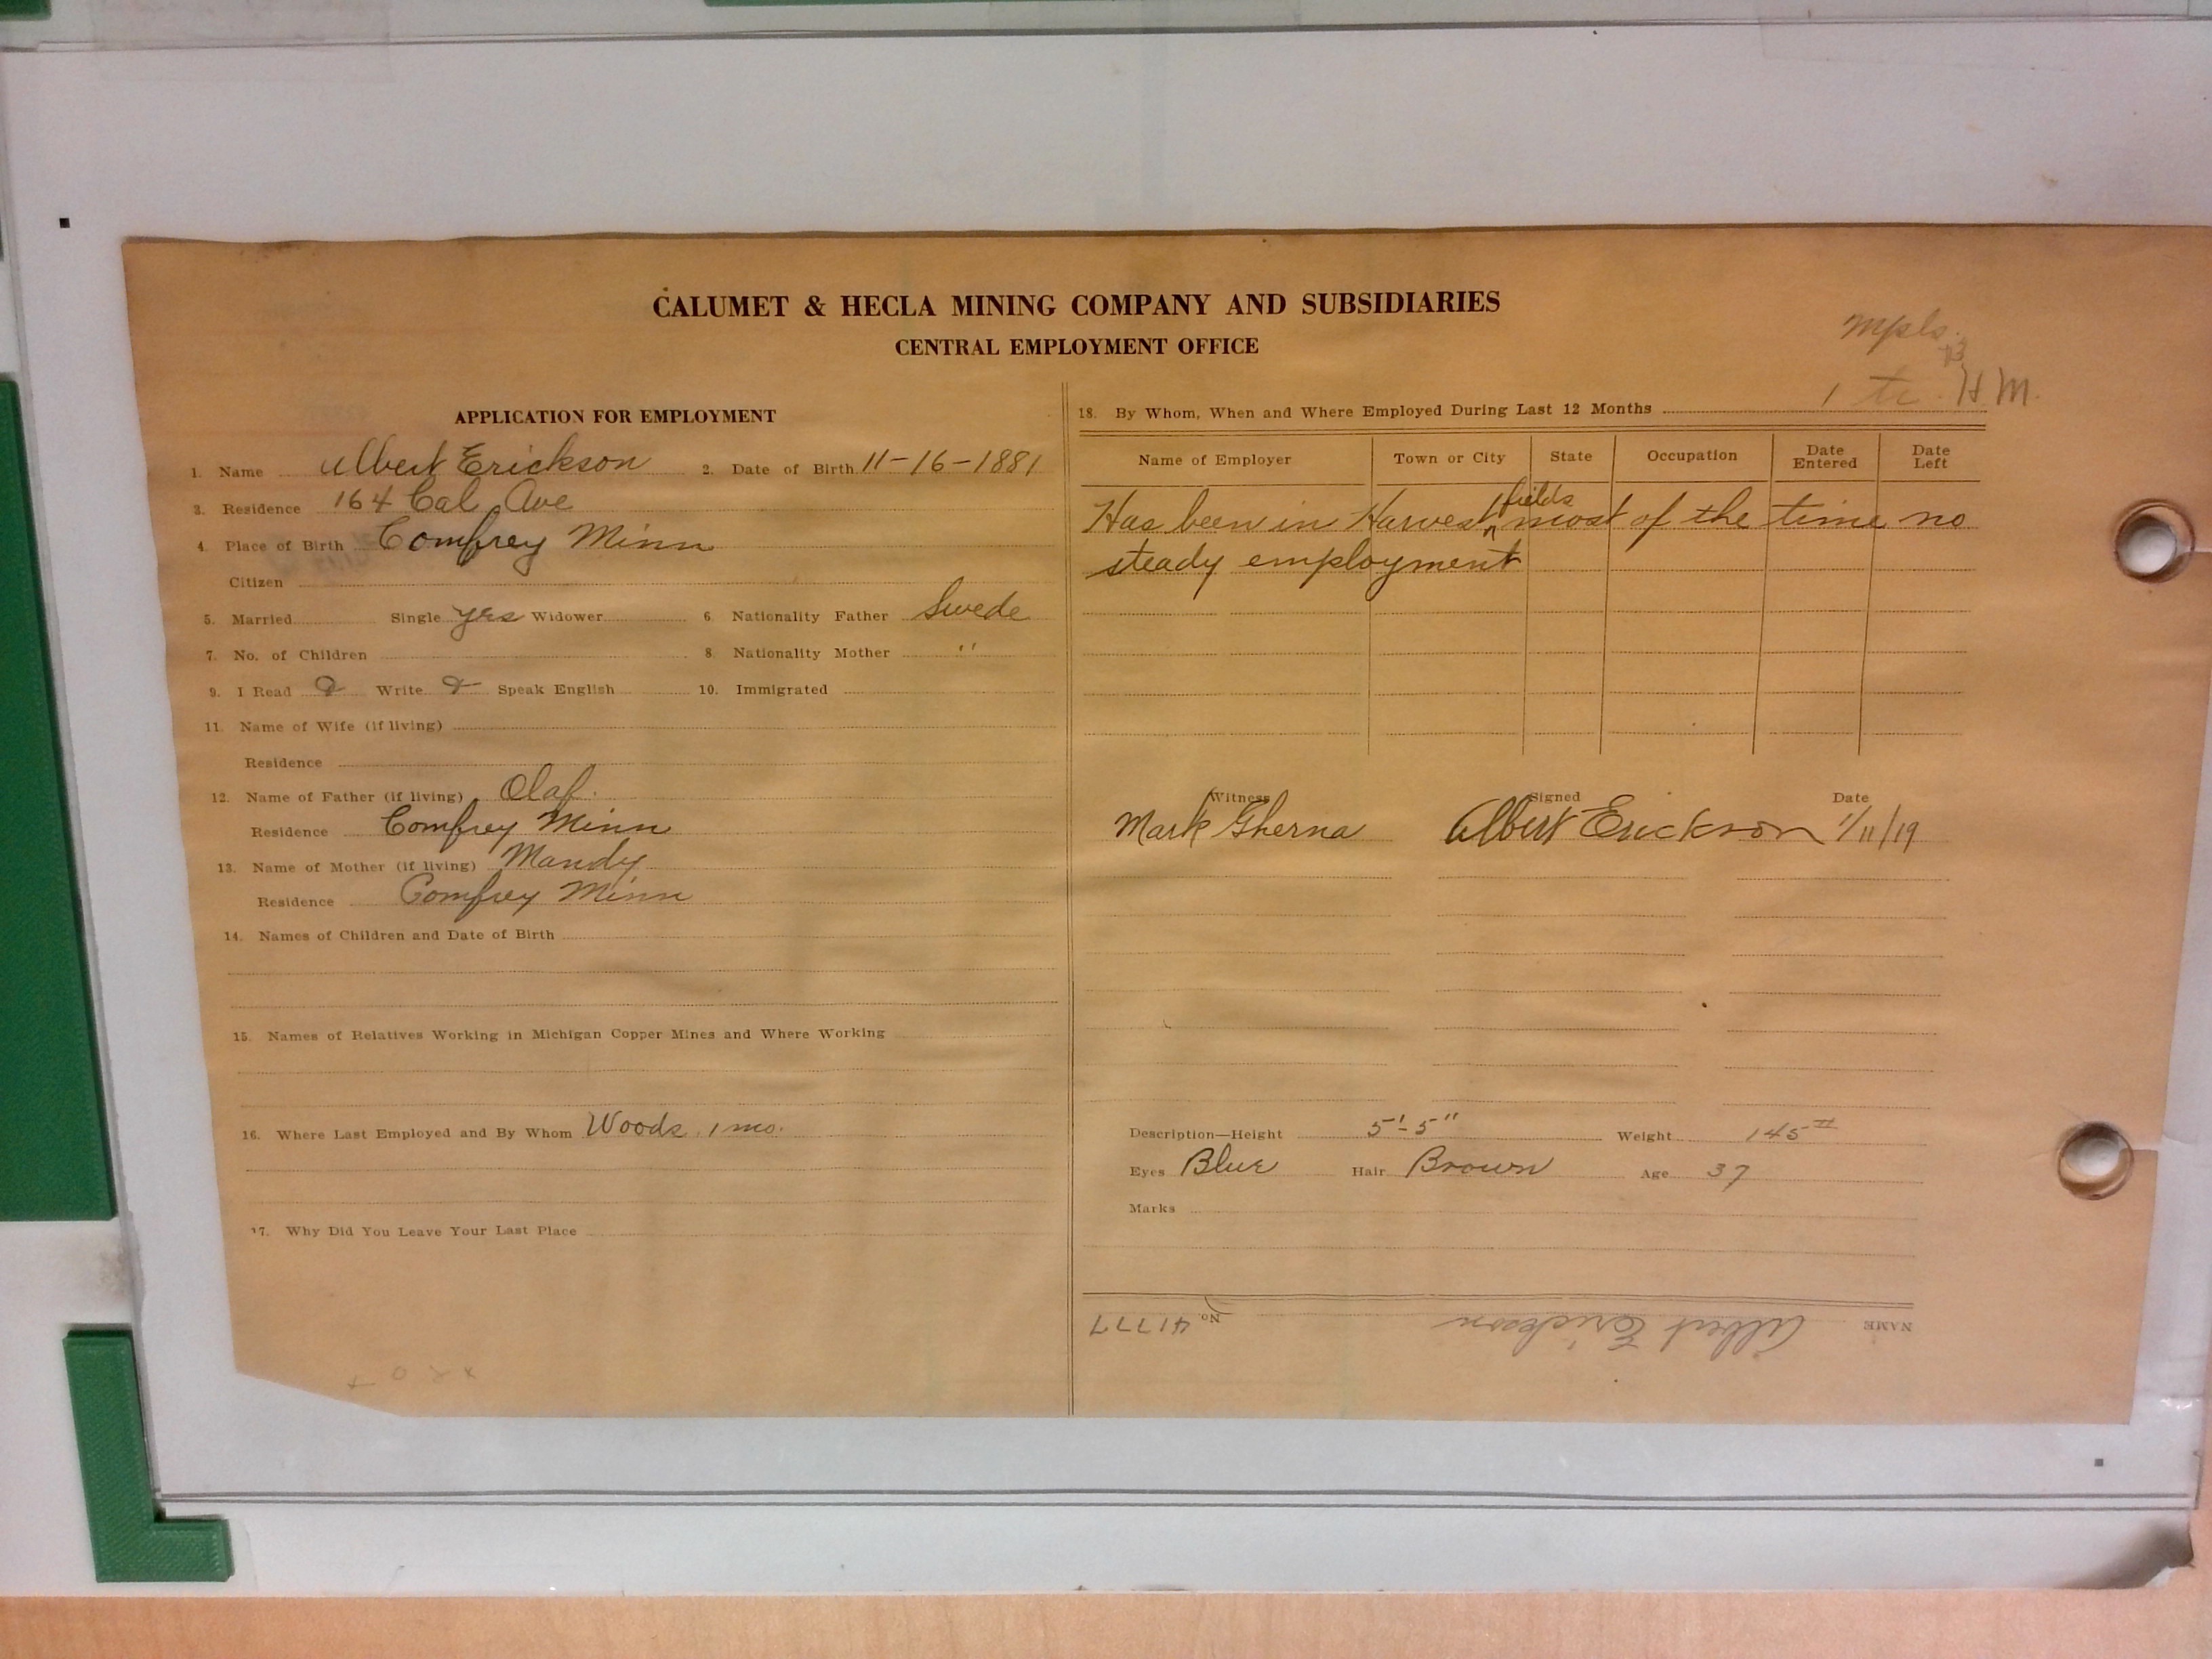 CALUMET & HECLA MINING COMPANY AND SUBSIDIARIES
CENTRAL EMPLOYMENT OFFICE
Mpls.
1 tr. H.M.
APPLICATION FOR EMPLOYMENT
1. Name Albert Erickson 2. Date of Birth 11-16-1881
3. Residence 164 Cal Ave
4. Place of Birth Comfrey Minn
Citizen
5. Married Single yes Widower 6. Nationality Father Swede
7. No. of Children 8. Nationality Mother "
9. I Read Write Speak English 10. Immigrated
11. Name of Wife (if living)
Residence
12. Name of Father (if living) Olaf.
Residence Comfrey Minn
13. Name of Mother (if living) Mandy
Residence Comfrey Minn
14. Names of Children and Date of Birth
15. Names of Relatives Working in Michigan Copper Mines and Where Working
16. Where Last Employed and By Whom Woods. 1 mo.
17. Why Did You Leave Your Last Place
18. By Whom, When and Where Employed During Last 12 Months
Name of Employer Town or City State Occupation Date Entered Date Left
Has been in Harvest fields most of the time no
steady employment
Witness Signed Date
Mark Gherna Albert Erickson 1/11/19
Description—Height 5'-5" Weight 145#
Eyes Blue Hair Brown Age 37
Marks
NAME Albert Erickson No. 41777